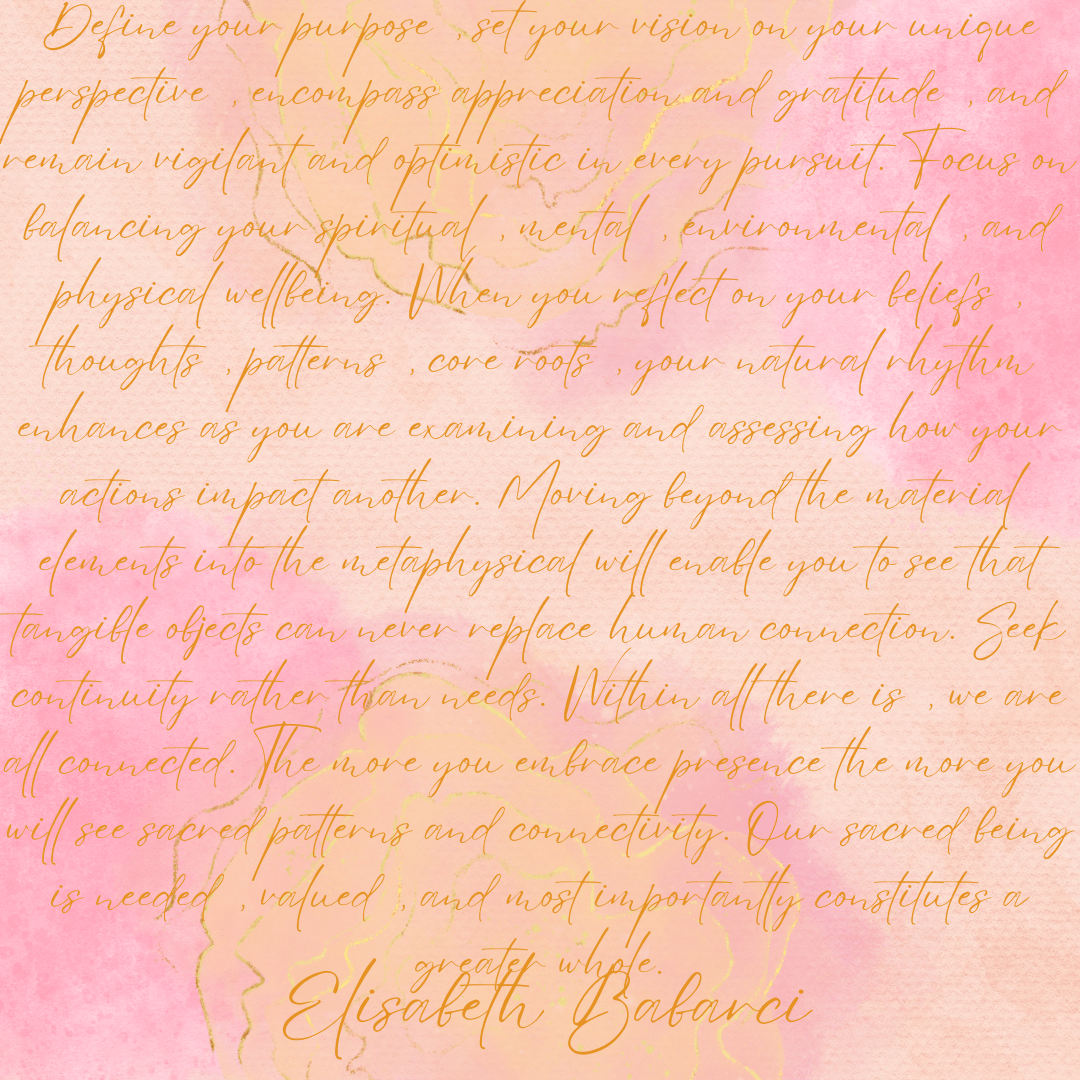 Define your purpose , set your vision on your unique
perspective , encompass appreciation and gratitude , and
remain vigilant and optimistic in every pursuit. Focus on
balancing your spiritual , mental , environmental , and
physical wellbeing. When you reflect on your beliefs ,
thoughts , patterns , core roots , your natural rhythm
enhances as you are examining and assessing how your
actions impact another. Moving beyond the material
elements into the metaphysical will enable you to see that
tangible objects can never replace human connection. Seek
continuity rather than needs. Within all there is , we are
all connected. The more you embrace presence the more you
will see sacred patterns and connectivity. Our sacred being
is needed , valued , and most importantly constitutes a
greater whole.
Elisabeth Babarci